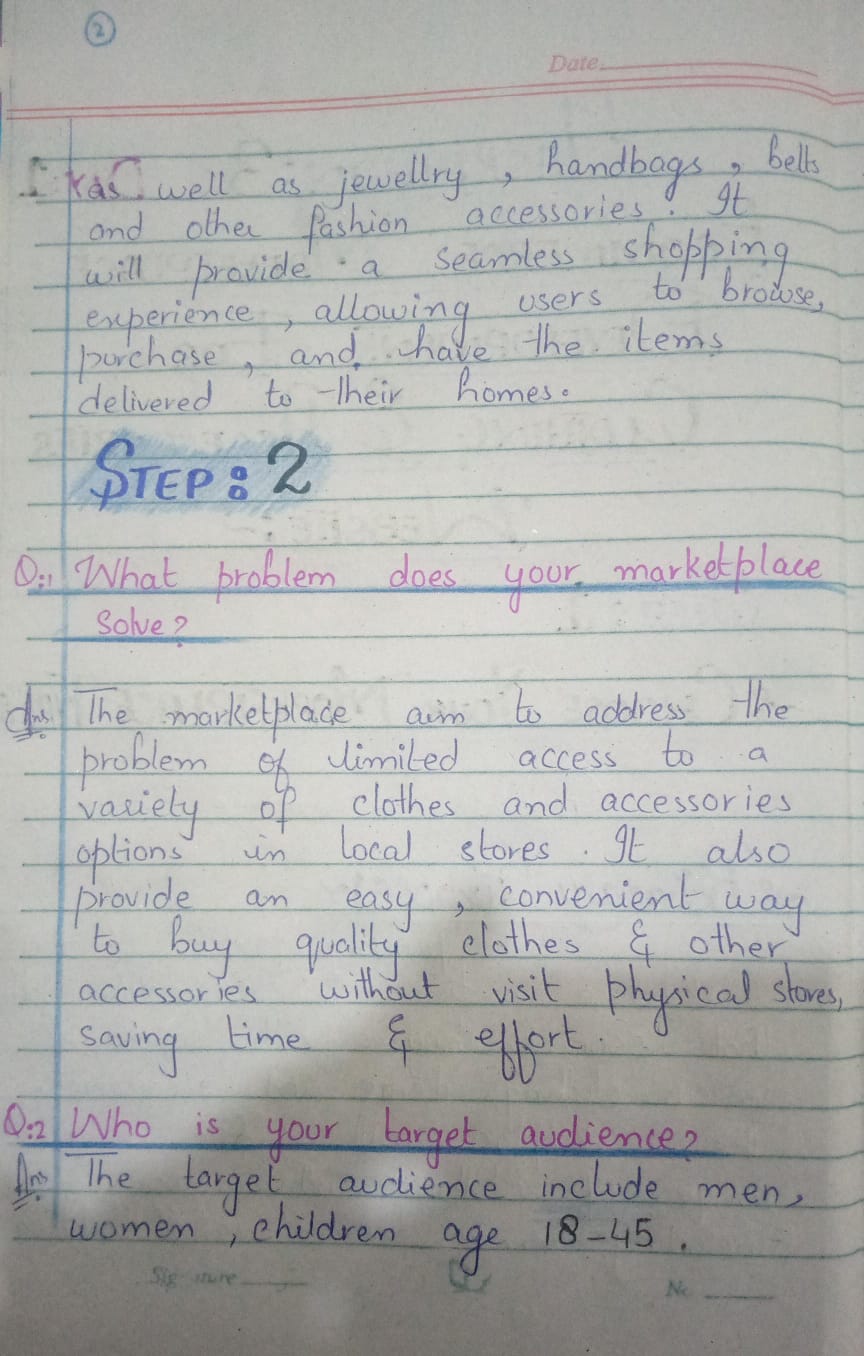 2
Date.
as well as jewellry, handbags, belts
and other fashion accessories. It
will provide a seamless shopping
experience, allowing users to browse,
purchase, and have the items
delivered to their homes.
STEP: 2
Q:1 What problem does your marketplace
solve?
Ans. The marketplace aim to address the
problem of limited access to a
variety of clothes and accessories
options in local stores. It also
provide an easy, convenient way
to buy quality clothes & other
accessories without visit physical stores,
saving time & effort.
Q:2 Who is your target audience?
Ans The target audience include men,
women, children age 18-45.
Signature
No